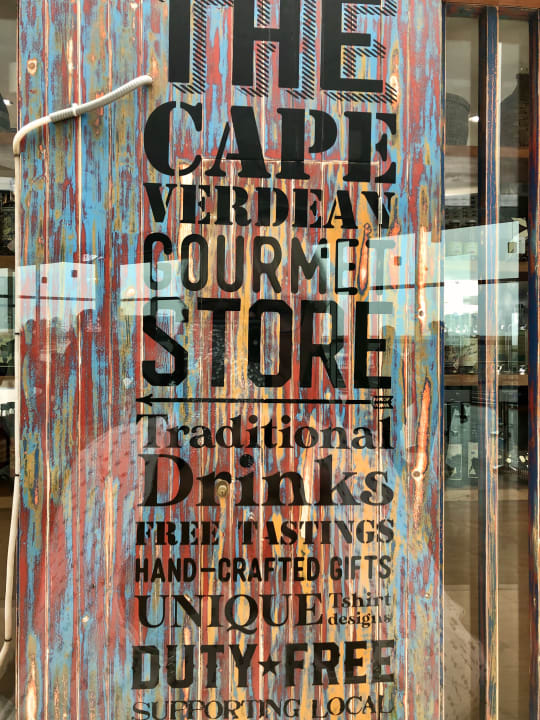 THE
CAPE
VERDEAN
GOURMET
STORE
Traditional
Drinks
FREE TASTINGS
HAND-CRAFTED GIFTS
UNIQUE Tshirt designs
DUTY★FREE
SUPPORTING LOCAL